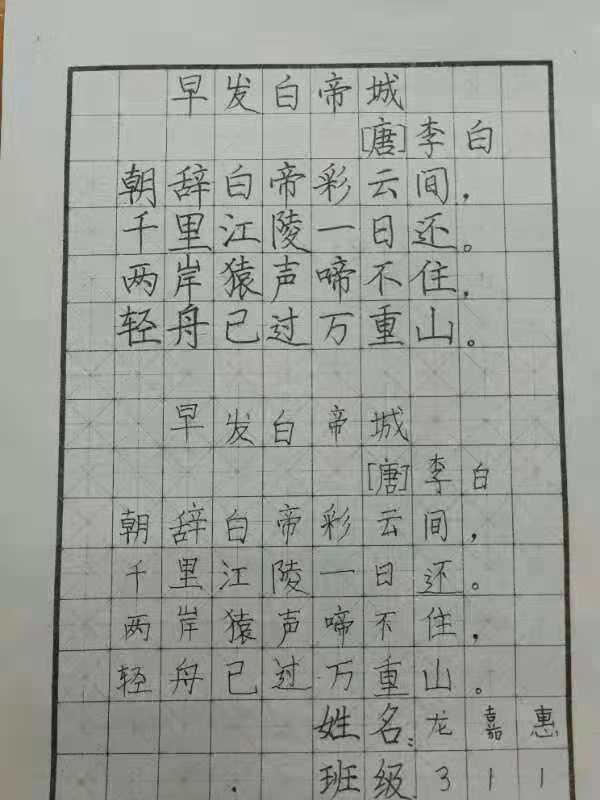 早发白帝城
[唐]李白
朝辞白帝彩云间，
千里江陵一日还。
两岸猿声啼不住，
轻舟已过万重山。
早发白帝城
[唐]李白
朝辞白帝彩云间，
千里江陵一日还。
两岸猿声啼不住，
轻舟已过万重山。
姓名：龙嘉惠
班级 311